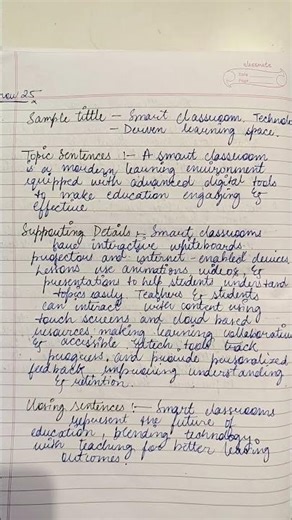 classmate
Date
Page
25
Sample tittle - Smart classroom Technology
- Driven learning space.
Topic Sentences :- A smart classroom
is a modern learning environment
equipped with advanced digital tools
to make education engaging &
effective
Supporting Details :- Smart classrooms
have interactive whiteboards
projectors and internet-enabled devices.
Lessons use animations, videos, &
presentations to help students understand
topics easily. Teachers & students
can interact with content using
touch screens and cloud based
resources making learning collaborative
& accessible. Edtech tools track
progress and provide personalized
feedback, improving understanding
& retention.
Closing sentences :- Smart classrooms
represent the future of
education, blending technology
with teaching for better learning
outcomes!